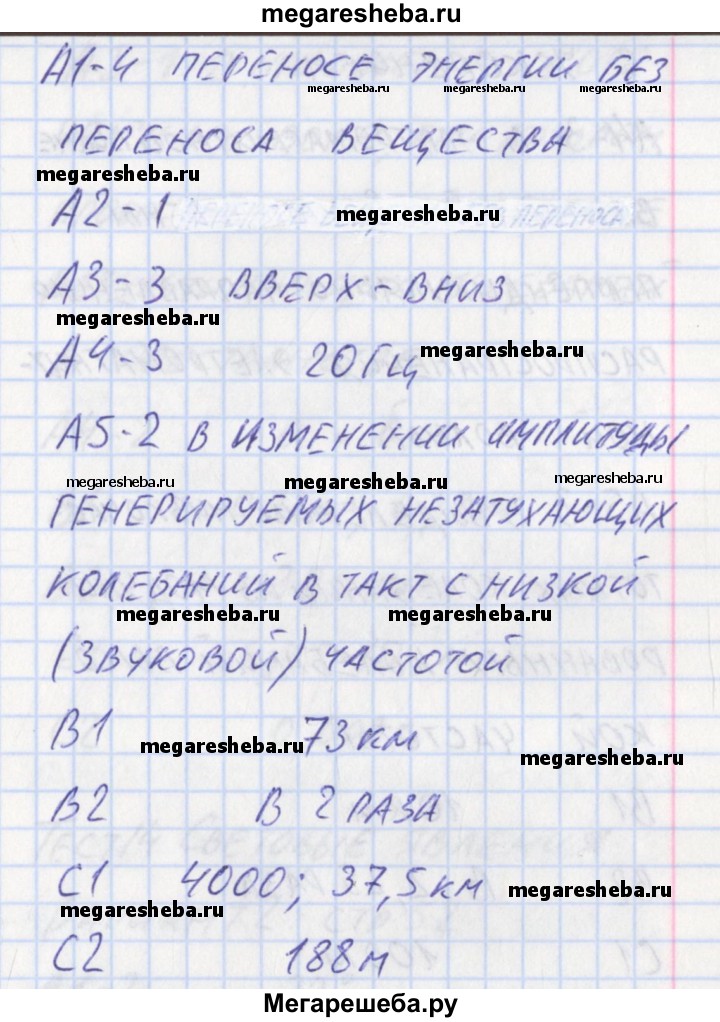 megaresheba.ru
А1-4 ПЕРЕНОСЕ ЭНЕРГИИ БЕЗ
megaresheba.ru megaresheba.ru megaresheba.ru
ПЕРЕНОСА ВЕЩЕСТВА
megaresheba.ru
А2-1
megaresheba.ru
А3-3 ВВЕРХ-ВНИЗ
megaresheba.ru
А4-3 20Гц
megaresheba.ru
А5-2 В ИЗМЕНЕНИИ АМПЛИТУДЫ
megaresheba.ru megaresheba.ru megaresheba.ru
ГЕНЕРИРУЕМЫХ НЕЗАТУХАЮЩИХ
КОЛЕБАНИЙ В ТАКТ С НИЗКОЙ
megaresheba.ru megaresheba.ru
(ЗВУКОВОЙ) ЧАСТОТОЙ
В1 73 км
megaresheba.ru megaresheba.ru
В2 В 2 РАЗА
С1 4000; 37,5 км
megaresheba.ru megaresheba.ru
С2 188 м
Мегарешеба.ру